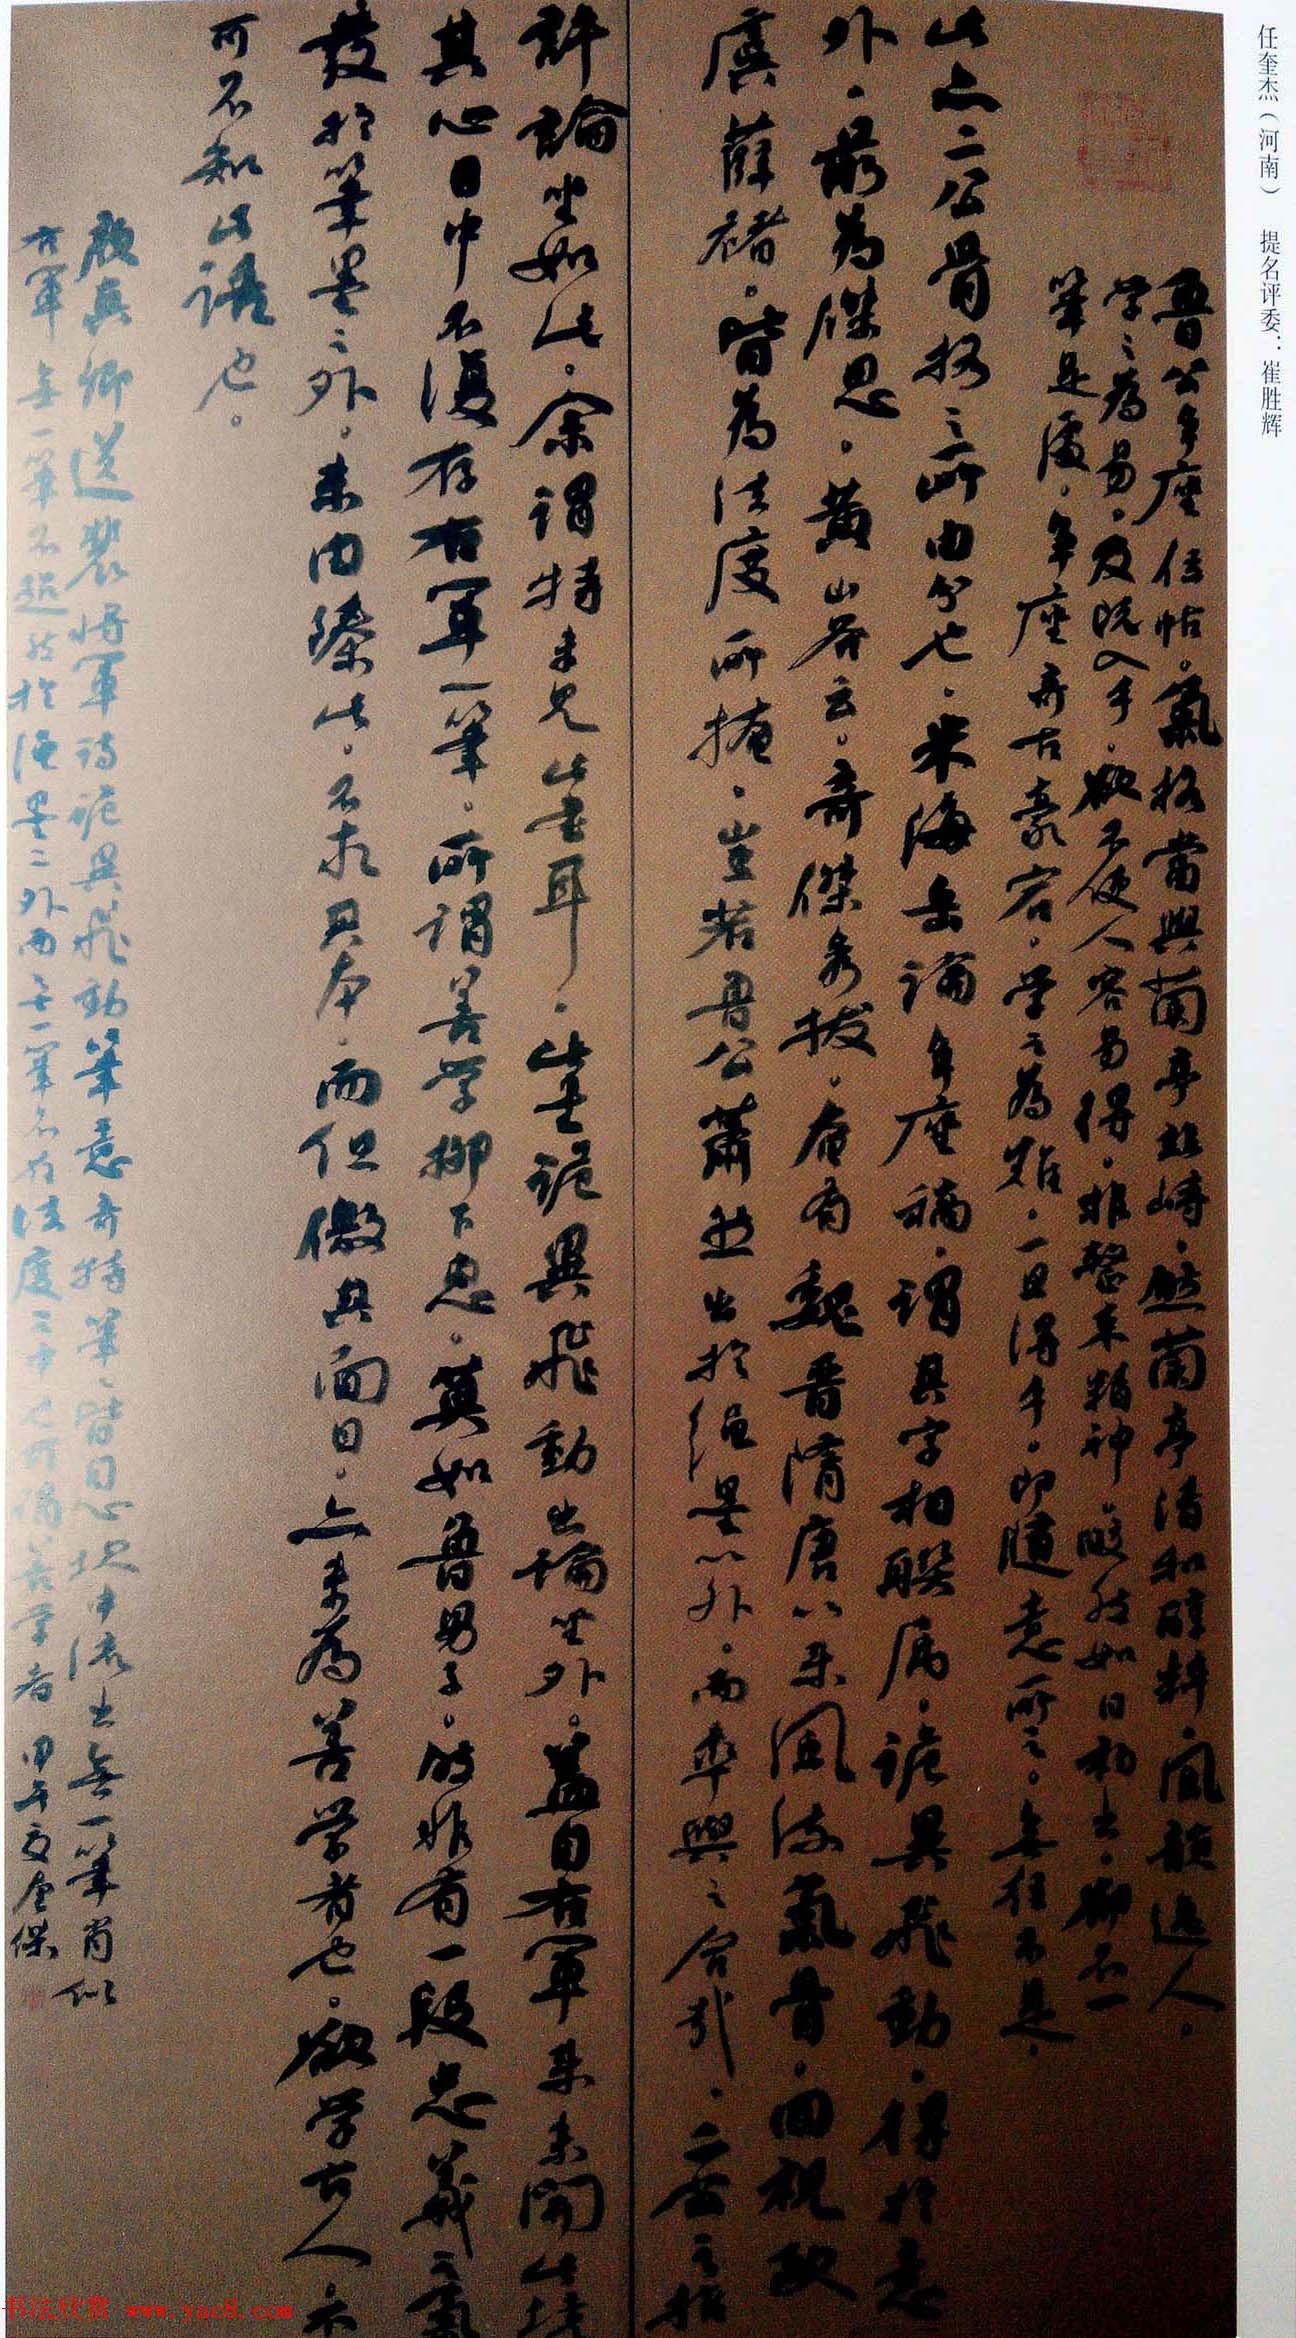 任奎杰（河南） 提名评委：崔胜辉
魯公争座位帖。氣格當與蘭亭並峙。然蘭亭清和醇粹。風韻逸人。
学之為易。及既入手。欲不使人容易得。非整束精神。如日初出。却不一
筆是處。争座奇古豪宕。学之為難。一旦得手。即隨意所之。無往不是。
此亦二公骨格之所由分也。米海岳論争座稿。謂其字相聯属。詭異飛動。得於意
外。最為傑思。黄山谷云。奇傑秀拔。奄有魏晋隋唐以来風流氣骨。回視歐
虞薛褚。皆為法度所掩。豈若魯公蕭然出於绳墨以外。而卒與之合哉。二公之指
評論坐如此。余謂特未見此書耳。此書詭異飛動出論坐外。蓋自右軍来未開此境
其心目中不復存右軍一筆。所謂善学柳下惠。莫如魯男子。時非有一段忠義之氣
發於筆墨之外。未由臻此。不求其本。而但倣其面目。亦未為善学者也。欲学古人。不
可不知此語也。
顏真卿送裴將軍詩詭異飛動筆意奇特筆筆皆自心坎中流出無一筆肖似
右軍無一筆不超然於繩墨之外而無一筆不在法度之中也可謂善学者 甲午 奎傑
书法欣赏 www.yac8.com